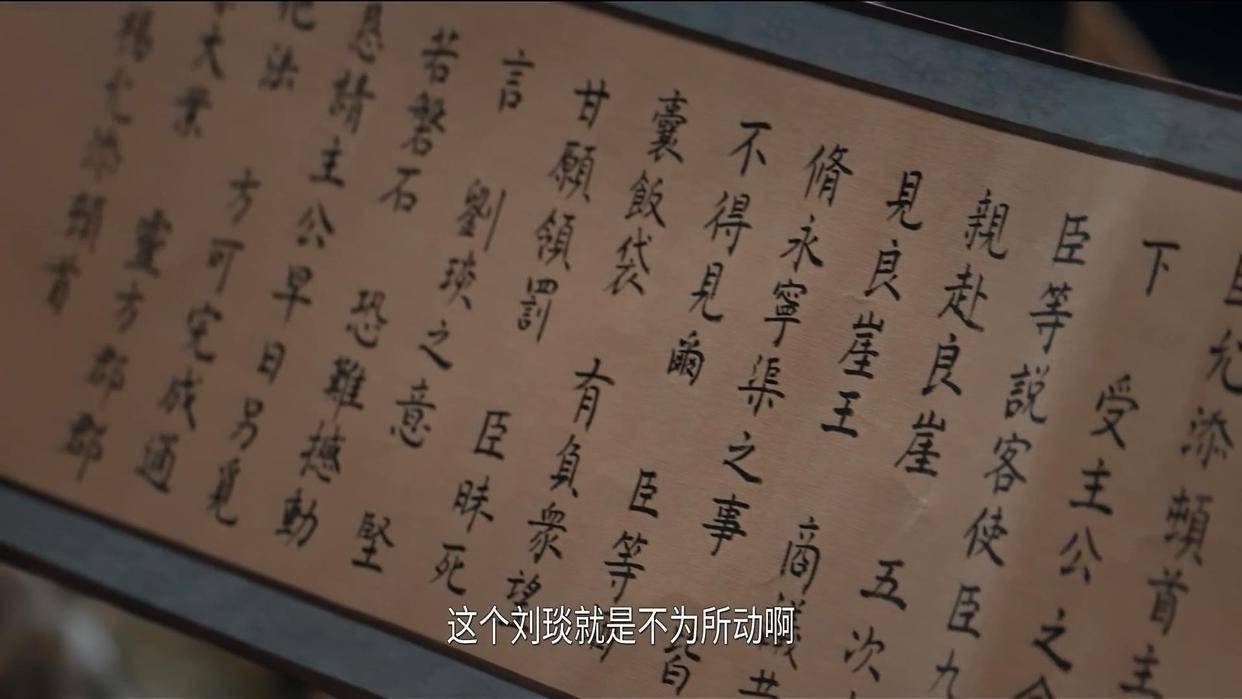 允添頓首主
下 受主公之
臣等説客使臣九
親赴良崖 五次
見良崖王 商議共
脩永寧渠之事 皆
不得見爾 臣等
囊飯袋 有負衆望
甘願領罰 臣昧死
言 劉琰之意 堅
若磐石 恐難撼動
懇請主公早日另覓
他法 方可完成通
大業 靈方郡郡
楊允添頓首
这个刘琰就是不为所动啊